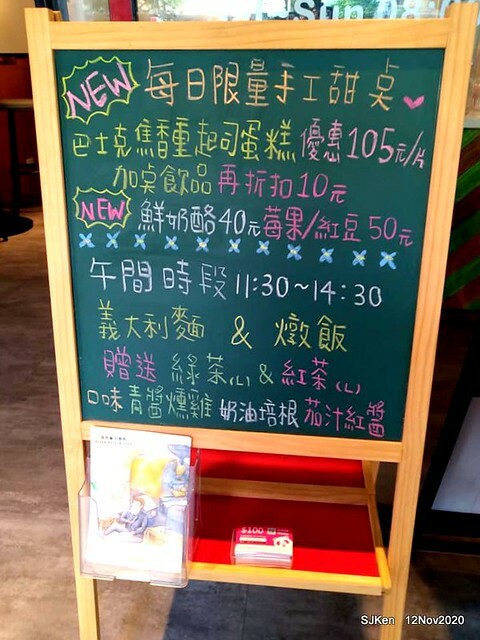 NEW 每日限量手工甜桌
巴士克焦香重起司蛋糕 優惠105元/片
加桌飲品再折扣10元
NEW 鮮奶酪40元 莓果/紅豆50元
午間時段 11:30~14:30
義大利麵 & 燉飯
贈送 綠茶(L) & 紅茶(L)
口味 青醬燻雞 奶油培根 茄汁紅醬
$100
SJKen 12Nov2020